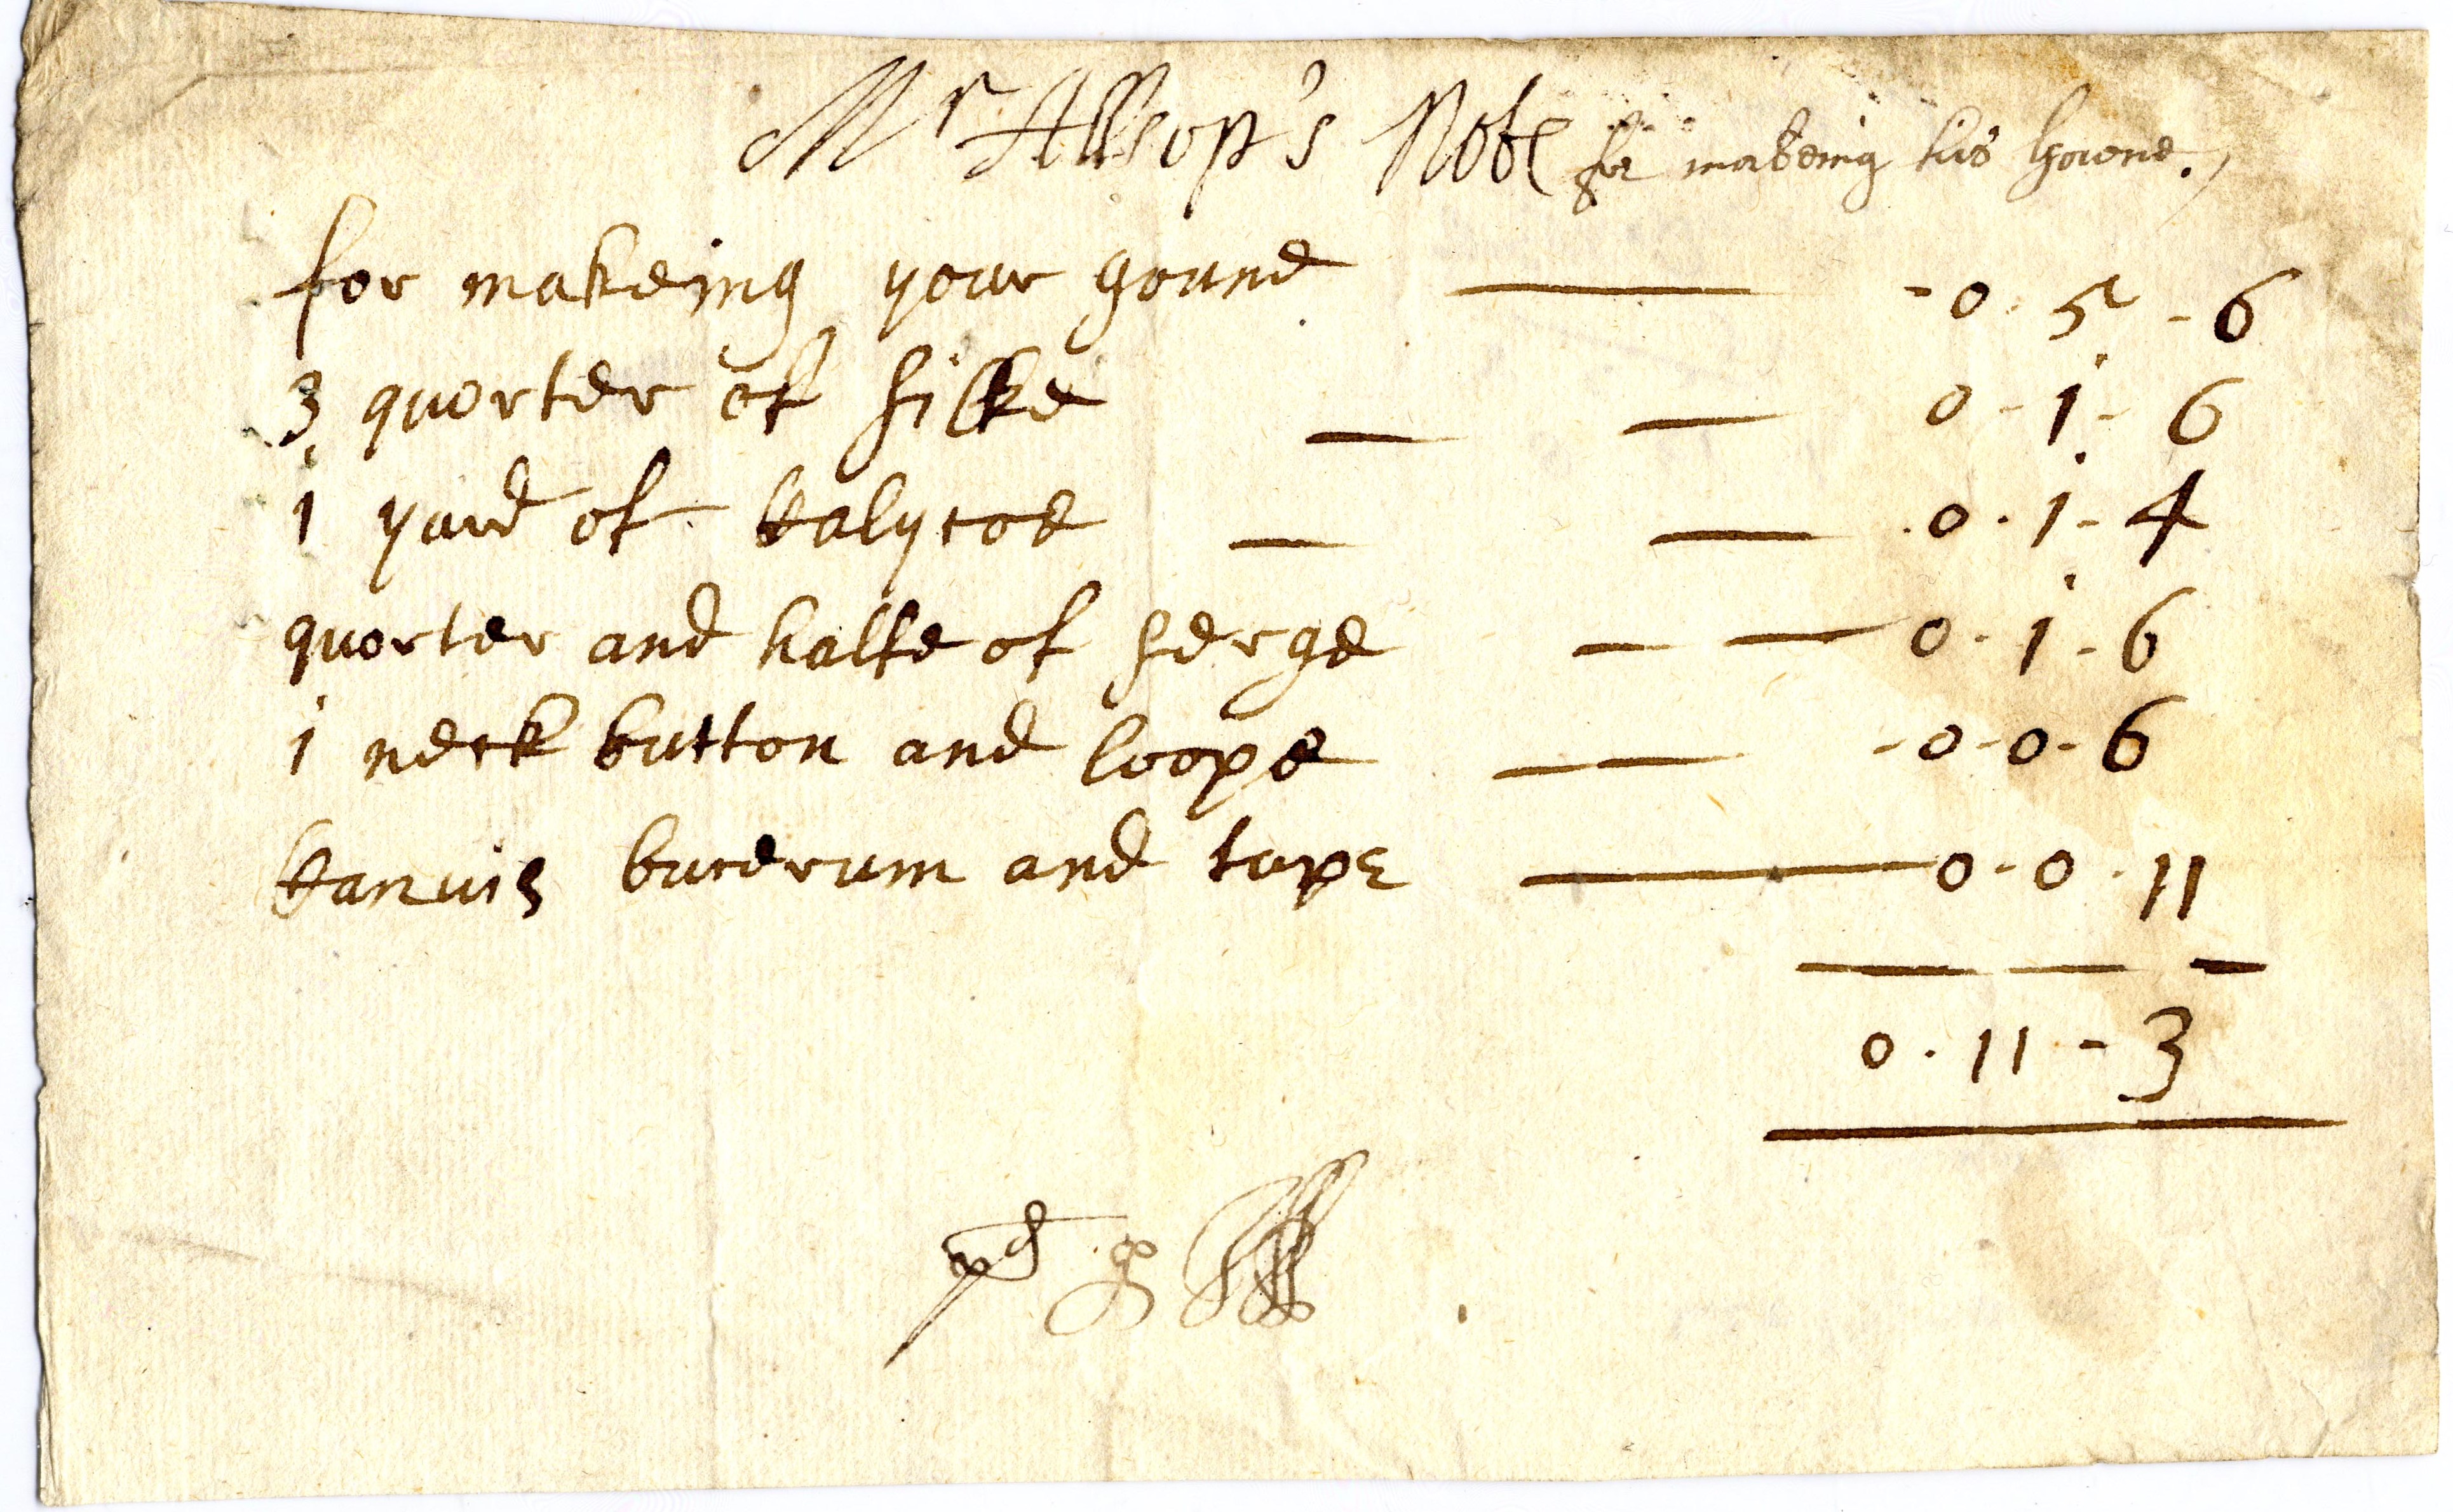 Mr Allsop's Note for makeing his Gowne.
for makeing your goune — - 0 . 5 - 6
3 quorter of silke — — 0 - 1 - 6
1 yard of kalycoe — — . 0 . 1 - 4
quorter and halfe of serge — — 0 - 1 - 6
1 neck button and loope — — - 0 - 0 - 6
kanvis bucerum and tape — 0 - 0 . 11
0 . 11 - 3
pd